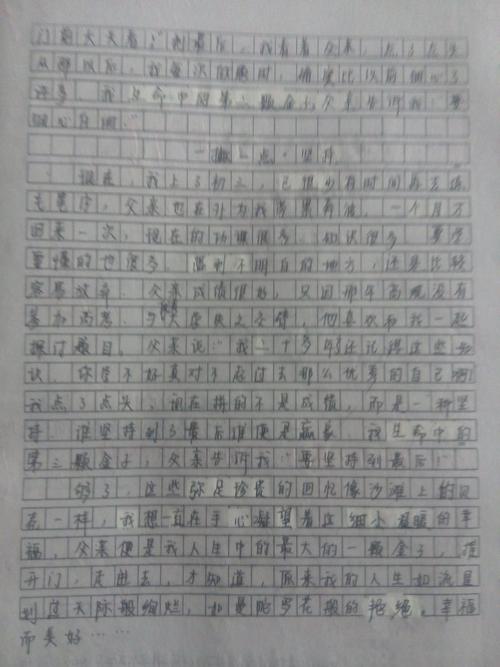 门前天天看。"到最后，我看着父亲，点了点头
从那以后，我每次的时，确实比以前细心了
许多。我生命中的第二颗金子，父亲告诉我："要
细心"
一撇一点·坚持
现在，我上了初三，已很少有时间再去练
毛笔字，父亲也在外为我而奔波，一个月才
回来一次，现在的功课很多，知识很多，要
要懂的也很多，遇到不明白的地方，还是比较
容易放弃。父亲成绩很好，只因那年高考没有
参加高考，与大学失之交臂，他喜欢和我一起
探讨题目。父亲说："我二十多年了还记得这些知
识，你学不好真对不起过去那么优秀的自己啊
我点了点头，现在拼的不是成绩，而是一种坚
持，谁坚持到了最后谁便是赢家。我生命中的
第三颗金子，父亲告诉我："要坚持到最后！"
够了，这些弥足珍贵的回忆像沙滩上的贝
壳一样，我想一直在手心凝望着这细小温暖的幸
福，父亲便是我人生中的最大的一颗金子，推
开门，走进去，才知道，原来我的人生如流星
划过天际般绚烂，如曼陀罗花般的艳绝。幸福
而美好……